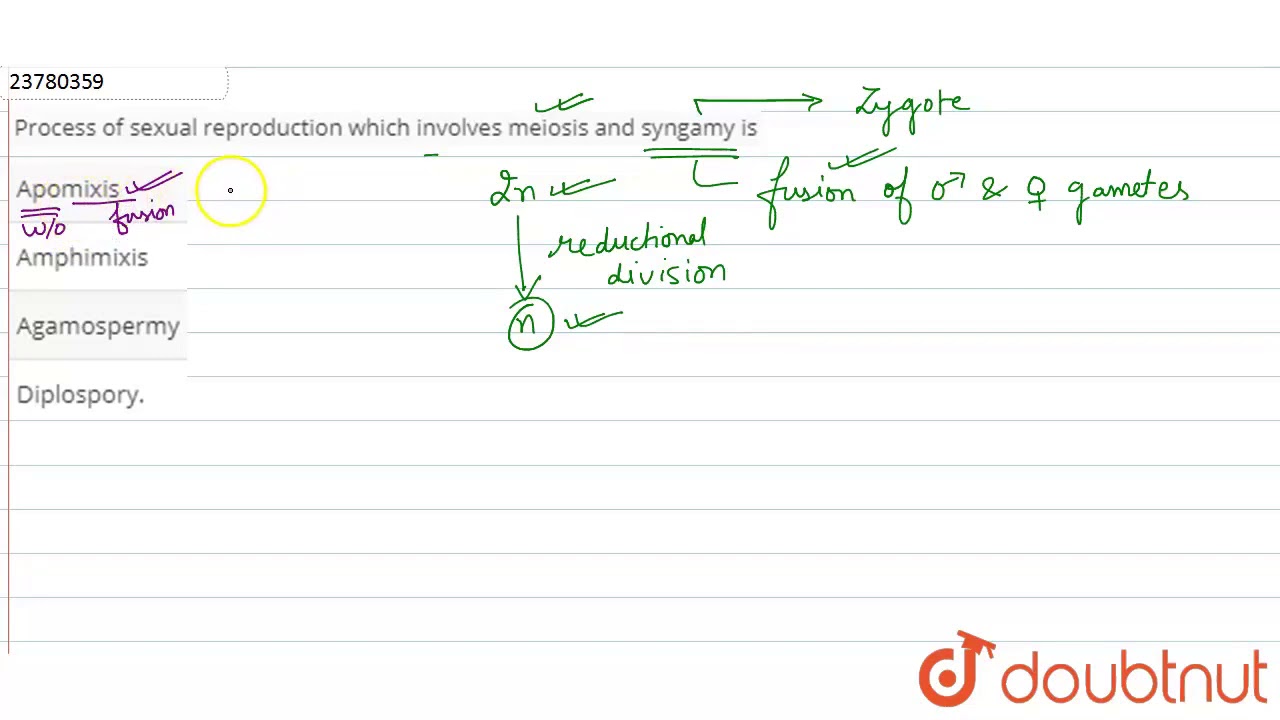 23780359
Zygote
Process of sexual reproduction which involves meiosis and syngamy is
Apomixis
w/o fusion
2n
fusion of ♂ & ♀ gametes
reductional
division
Amphimixis
n
Agamospermy
Diplospory.
doubtnut